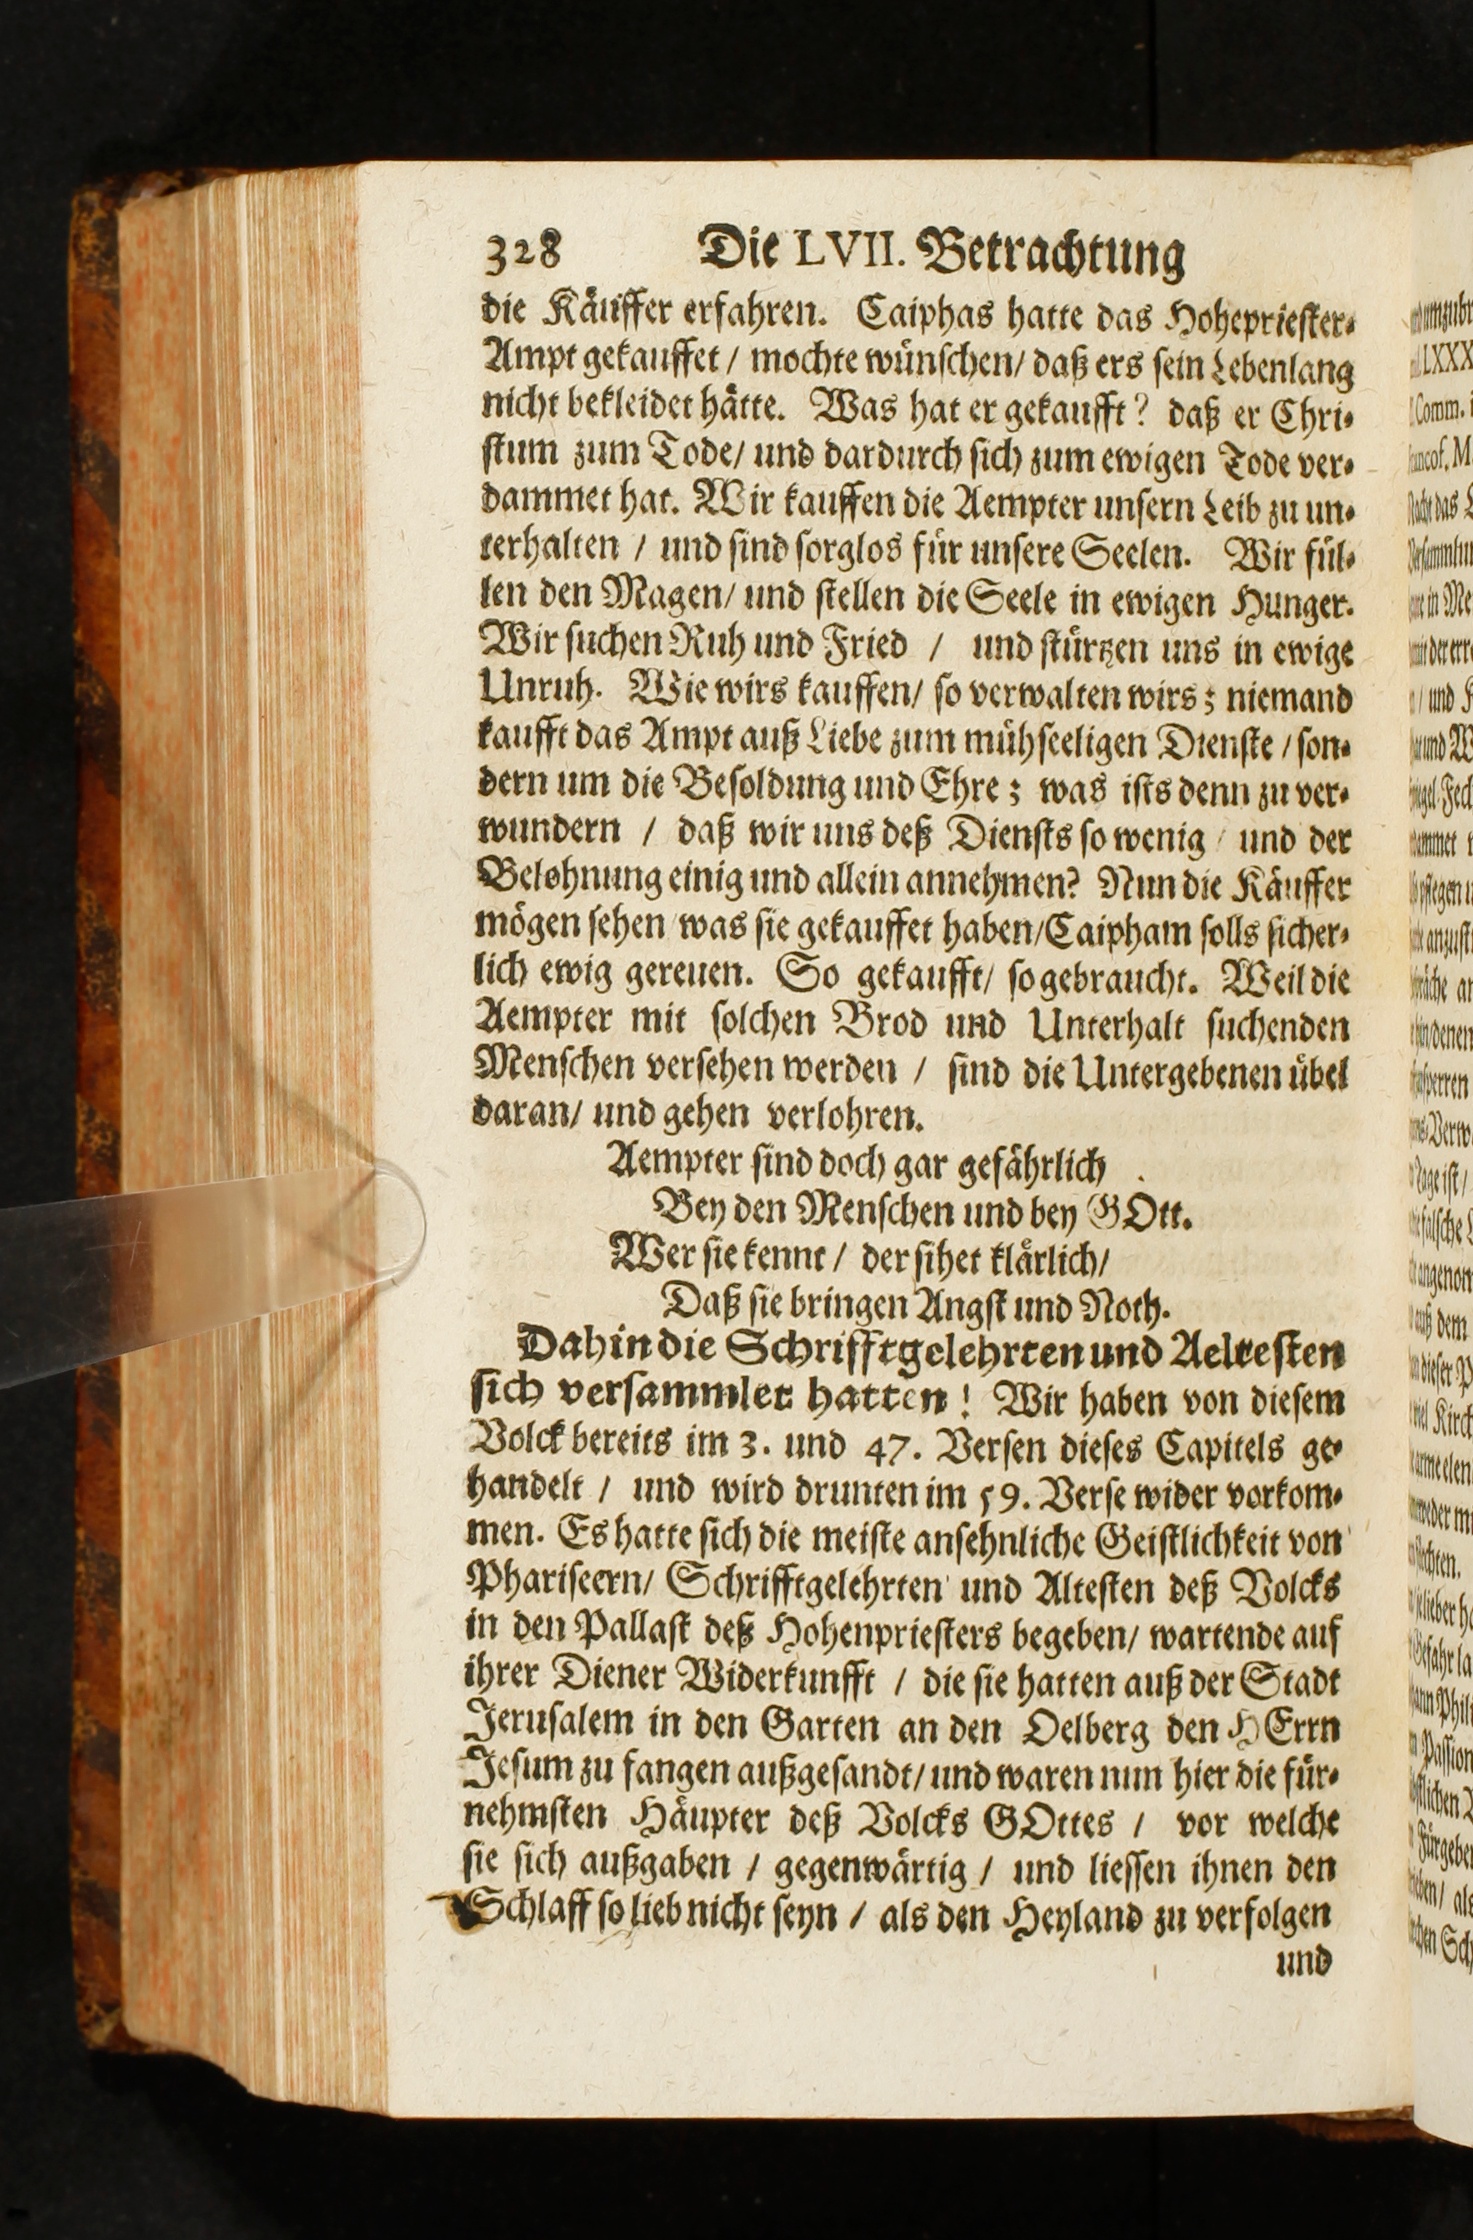 328 Die LVII. Betrachtung
die Käuffer erfahren. Caiphas hatte das Hohepriester-
Ampt gekauffet / mochte wünschen / daß ers sein Lebenlang
nicht bekleidet hätte. Was hat er gekaufft? daß er Chri-
stum zum Tode / und dardurch sich zum ewigen Tode ver-
dammet hat. Wir kauffen die Aempter unsern Leib zu un-
terhalten / und sind sorglos für unsere Seelen. Wir fül-
len den Magen / und stellen die Seele in ewigen Hunger.
Wir suchen Ruh und Fried / und stürtzen uns in ewige
Unruh. Wie wirs kauffen / so verwalten wirs; niemand
kaufft das Ampt auß Liebe zum mühseeligen Dienste / son-
dern um die Besoldung und Ehre; was ists denn zu ver-
wundern / daß wir uns deß Diensts so wenig / und der
Belohnung einig und allein annehmen? Nun die Käuffer
mögen sehen was sie gekauffet haben / Caipham solls sicher-
lich ewig gereuen. So gekaufft / so gebraucht. Weil die
Aempter mit solchen Brod und Unterhalt suchenden
Menschen versehen werden / sind die Untergebenen übel
daran / und gehen verlohren.
Aempter sind doch gar gefährlich
Bey den Menschen und bey GOtt.
Wer sie kennt / der sihet klärlich /
Daß sie bringen Angst und Noth.
Dahin die Schrifftgelehrten und Aeltesten
sich versammlet hatten! Wir haben von diesem
Volck bereits im 3. und 47. Versen dieses Capitels ge-
handelt / und wird drunten im 59. Verse wider vorkom-
men. Es hatte sich die meiste ansehnliche Geistlichkeit von
Phariseern / Schrifftgelehrten und Altesten deß Volcks
in den Pallast deß Hohenpriesters begeben / wartende auf
ihrer Diener Widerkunfft / die sie hatten auß der Stadt
Jerusalem in den Garten an den Oelberg den HErrn
Jesum zu fangen außgesandt / und waren nun hier die für-
nehmsten Häupter deß Volcks GOttes / vor welche
sie sich außgaben / gegenwärtig / und liessen ihnen den
Schlaff so lieb nicht seyn / als den Heyland zu verfolgen
und